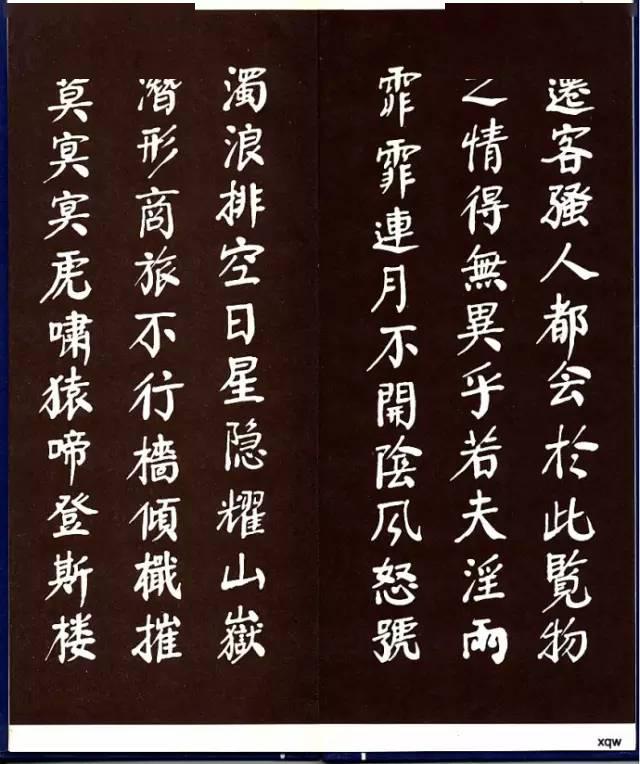 遷客騷人都会於此覧物
之情得無異乎若夫淫雨
霏霏連月不開陰风怒號
濁浪排空日星隐耀山嶽
潛形商旅不行檣傾檝摧
莫冥冥虎嘯猿啼登斯楼
xqw